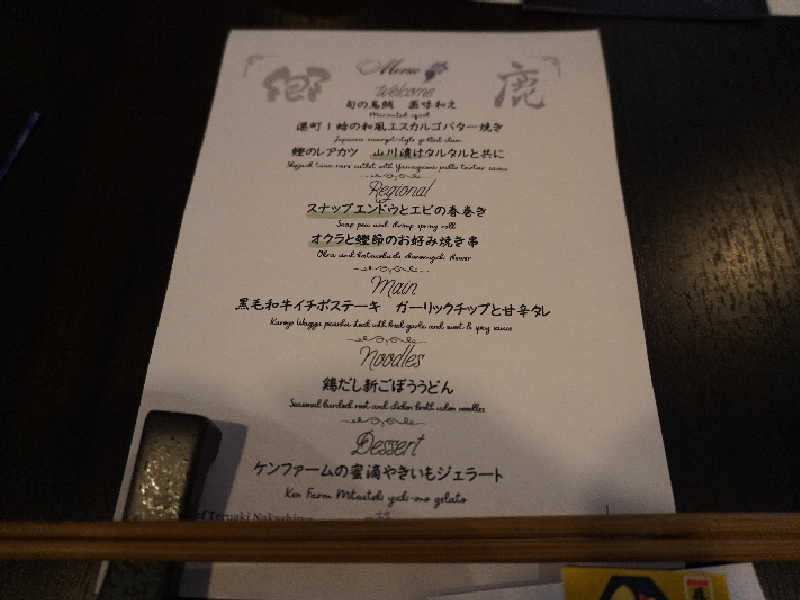 郷 Menu 鹿
Welcome
旬の烏賊 薬味和え
Marinated squid
港町1蛤の和風エスカルゴバター焼き
鰹のレアカツ 山川漬けタルタルと共に
Regional
スナップエンドウとエビの春巻き
Snap pea and shrimp spring roll
オクラと鰹節のお好み焼き串
Okra and katsuobushi okonomiyaki skewer
Main
黒毛和牛イチボステーキ ガーリックチップと甘辛タレ
Noodles
鶏だし新ごぼううどん
Seasonal burdock root and chicken broth udon noodles
Dessert
ケンファームの蜜滴やきいもジェラート
Ken Farm Mitsuteki yaki-imo gelato